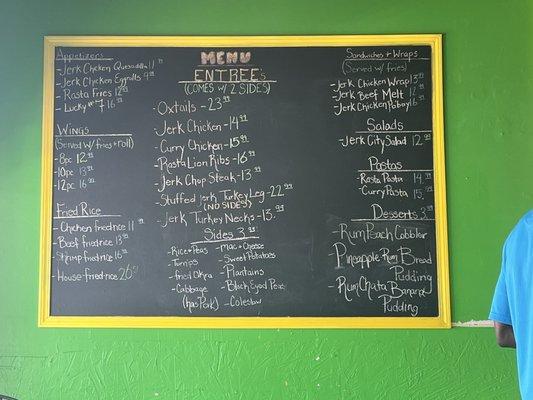 MENU
Appetizers
-Jerk Chicken Quesadilla 11
-Jerk Chicken Eggrolls 9
-Rasta Fries 12
-Lucky #7 16
Wings
(Served w/ fries + roll)
-8pc 12
-10pc 13
-12pc 16
Fried Rice
-Chicken fried rice 11
-Beef fried rice 13
-Shrimp fried rice 16
-House fried rice 20
ENTREES
(COMES w/ 2 SIDES)
-Oxtails - 23
-Jerk Chicken - 14
-Curry Chicken - 15
-Rasta Lion Ribs - 16
-Jerk Chop Steak - 13
-Stuffed Jerk Turkey Leg - 22
(NO SIDES)
-Jerk Turkey Necks - 13
Sides 3
-Rice + Peas
-Turnips
-fried Okra
-Cabbage
(has Pork)
-mac + Cheese
-Sweet Potatoes
-Plantains
-Black Eyed Peas
-Coleslaw
Sandwiches + Wraps
(Served w/ fries)
-Jerk Chicken Wrap 13
-Jerk Beef Melt 12
-Jerk Chicken Poboy 16
Salads
-Jerk City Salad 12
Pastas
-Rasta Pasta 14
-Curry Pasta 15
Desserts 3
-Rum Peach Cobbler
-Pineapple Rum Bread
Pudding
-Rum Chata Banana
Pudding